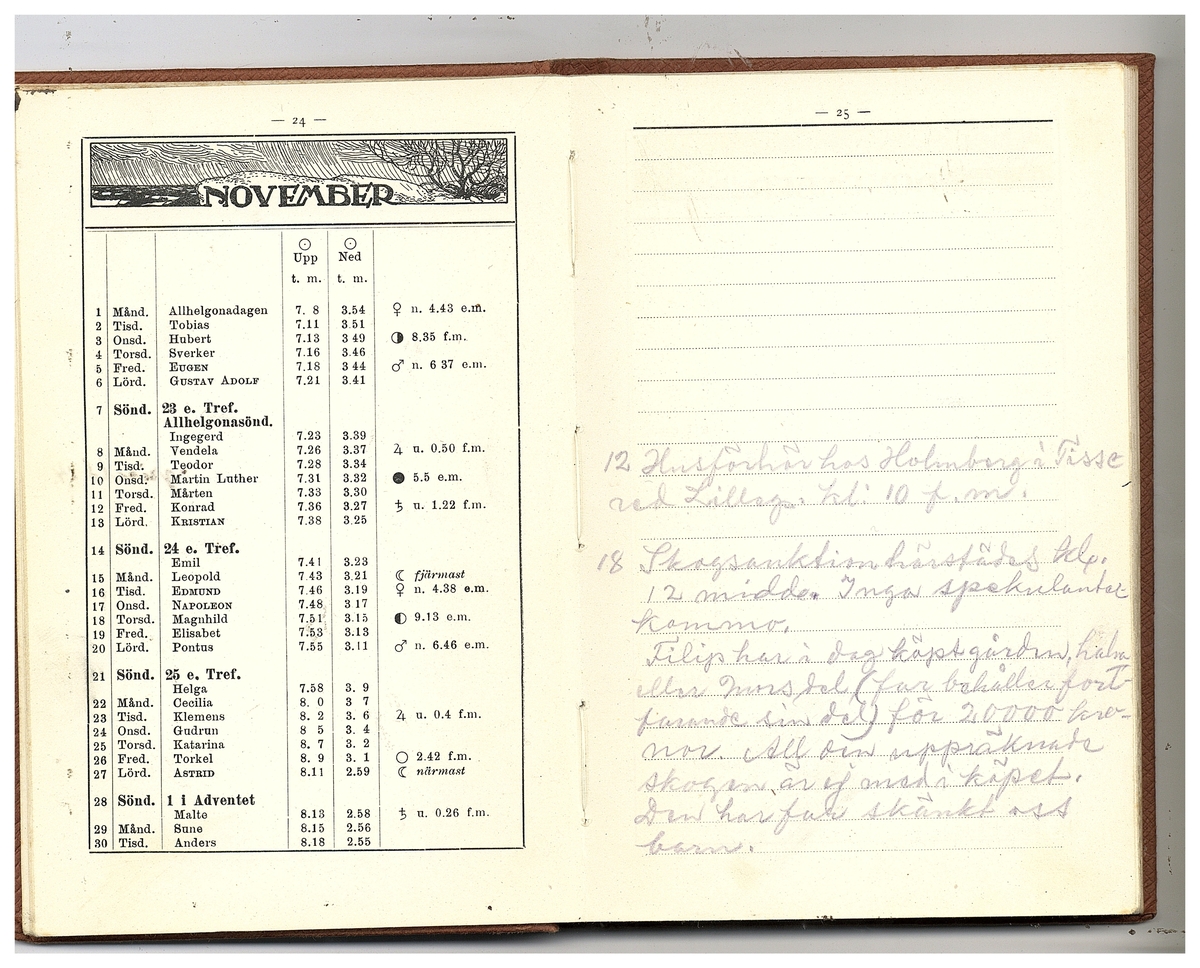 — 24 —
NOVEMBER
☉ ☉
Upp Ned
t. m. t. m.
1 Månd. Allhelgonadagen 7. 8 3.54 ♀ n. 4.43 e.m.
2 Tisd. Tobias 7.11 3.51
3 Onsd. Hubert 7.13 3 49 ◑ 8.35 f.m.
4 Torsd. Sverker 7.16 3.46
5 Fred. EUGEN 7.18 3 44 ♂ n. 6 37 e.m.
6 Lörd. GUSTAV ADOLF 7.21 3.41
7 Sönd. 23 e. Tref.
Allhelgonasönd.
Ingegerd 7.23 3.39
8 Månd. Vendela 7.26 3.37 ♃ u. 0.50 f.m.
9 Tisd. Teodor 7.28 3.34
10 Onsd. Martin Luther 7.31 3.32 ● 5.5 e.m.
11 Torsd. Mårten 7.33 3.30
12 Fred. Konrad 7.36 3.27 ♄ u. 1.22 f.m.
13 Lörd. KRISTIAN 7.38 3.25
14 Sönd. 24 e. Tref.
Emil 7.41 3.23
15 Månd. Leopold 7.43 3.21 ☾ fjärmast
16 Tisd. EDMUND 7.46 3.19 ♀ n. 4.38 e.m.
17 Onsd. NAPOLEON 7.48 3 17
18 Torsd. Magnhild 7.51 3.15 ◐ 9.13 e.m.
19 Fred. Elisabet 7.53 3.13
20 Lörd. Pontus 7.55 3.11 ♂ n. 6.46 e.m.
21 Sönd. 25 e. Tref.
Helga 7.58 3. 9
22 Månd. Cecilia 8. 0 3 7
23 Tisd. Klemens 8. 2 3. 6 ♃ u. 0.4 f.m.
24 Onsd. Gudrun 8 5 3. 4
25 Torsd. Katarina 8. 7 3. 2
26 Fred. Torkel 8. 9 3. 1 ○ 2.42 f.m.
27 Lörd. ASTRID 8.11 2.59 ☾ närmast
28 Sönd. 1 i Adventet
Malte 8.13 2.58 ♄ u. 0.26 f.m.
29 Månd. Sune 8.15 2.56
30 Tisd. Anders 8.18 2.55
— 25 —
12 Husförhör hos Holmberg i Tisse
red Lilleg. kl. 10 f.m.
18 Skogsauktion härstädes klo.
12 midd. Inga spekulanter
kommo.
Filip har i dag köpt gården, halva
eller mors del (far behåller fort-
farande sin del) för 20000 kro-
nor. All den uppräknade
skogen är ej med i köpet.
Den har far skänkt oss
barn.